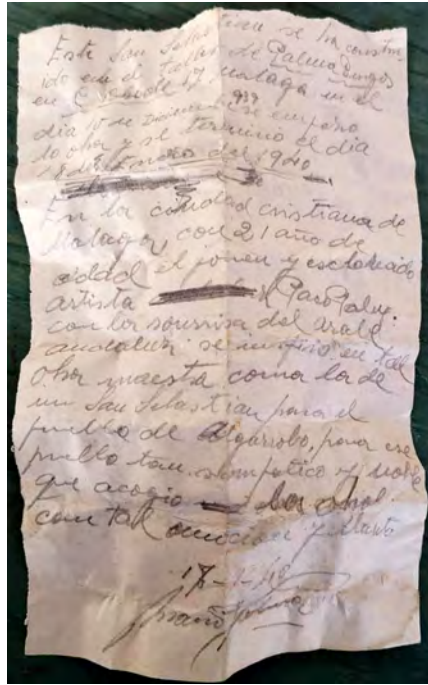 Este San Sebastian se ha constru-
ido en el taller de Palma Burgos
en 17 malaga en el
dia 10 de Diciembre se empeso
939
la obra y se termino el dia
18 de Enero del 1940
En la ciudad cristiana de
Malaga, con 21 año de
edad el joven y esclarecido
artista Paco Palma
con la sonrisa del
andaluz se inspiro en tal
obra maestra como la de
un San Sebastian para el
pueblo de Algarrobo, para ese
pueblo tan simpatico y noble
que acogio la obra
con tal emocion y llanto
17-1-40